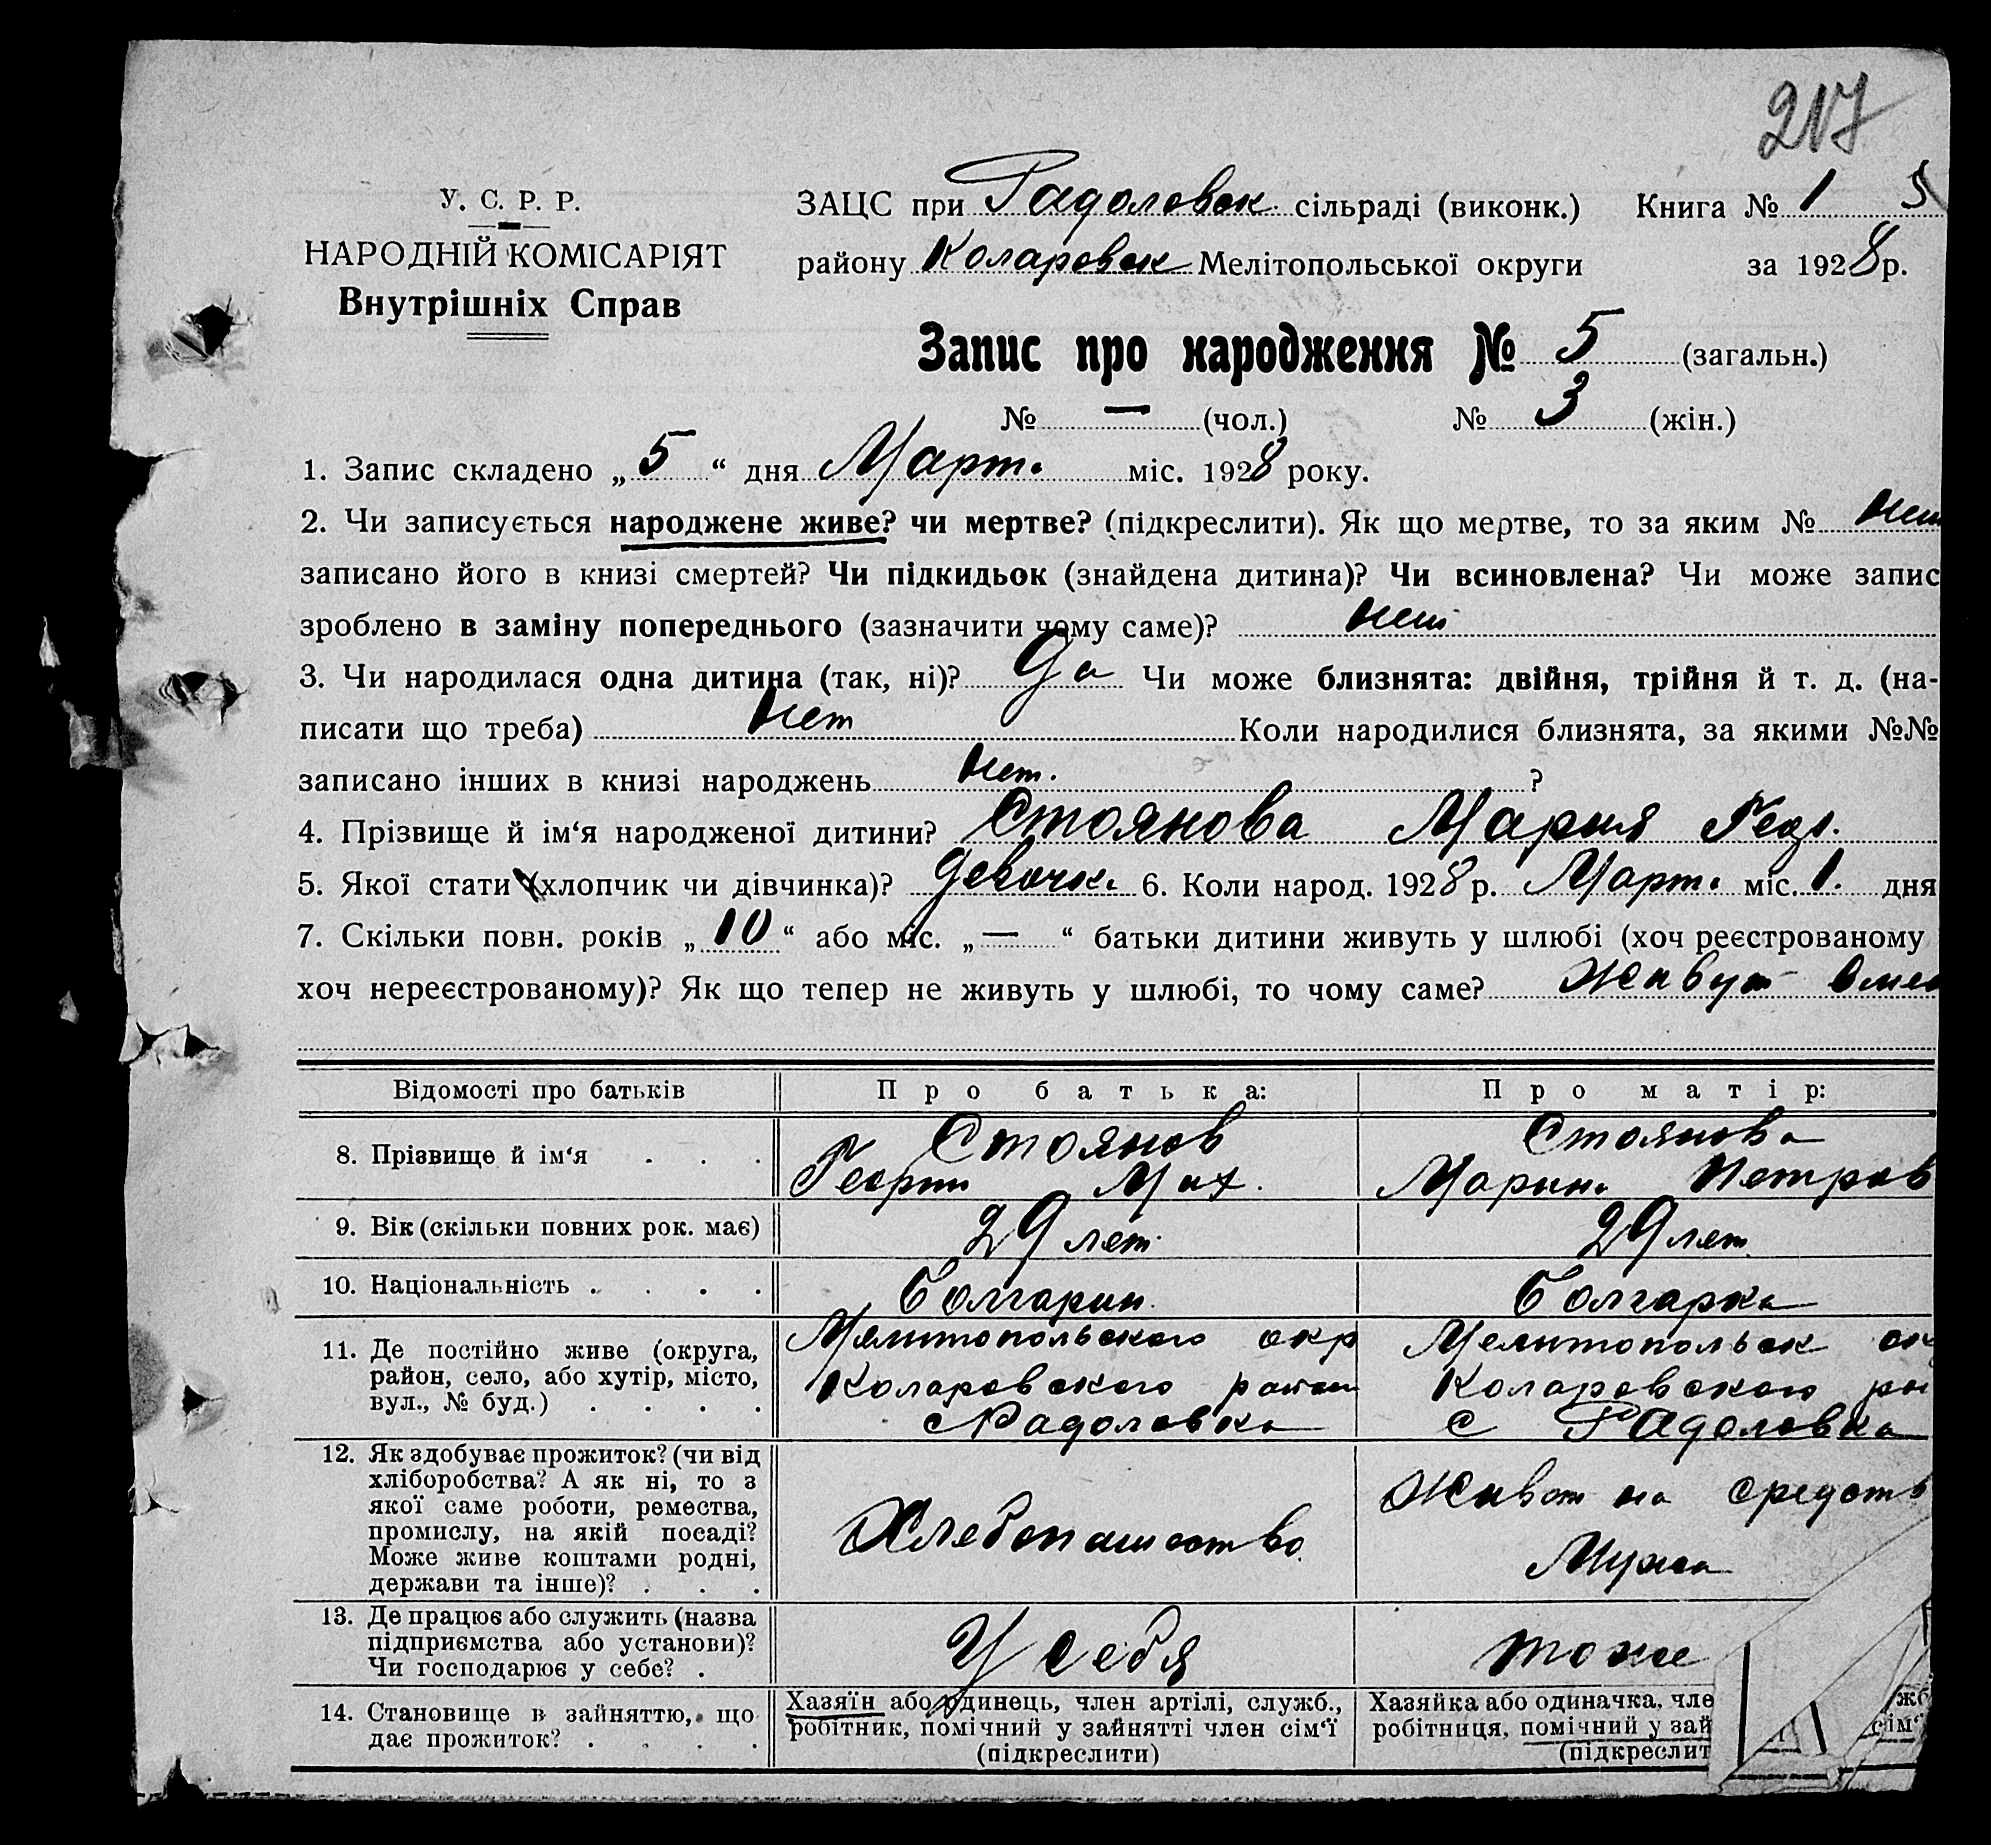 217
У. С. Р. Р.
НАРОДНІЙ КОМІСАРІЯТ
Внутрішніх Справ
ЗАЦС при Радоловск. сільраді (виконк.) Книга № 1
району Коларовск Мелітопольської округи за 1928 р.
Запис про народження № 5 (загальн.)
№ — (чол.) № 3 (жін.)
1. Запис складено „ 5 “ дня Март. міс. 1928 року.
2. Чи записується народжене живе? чи мертве? (підкреслити). Як що мертве, то за яким № нет
записано його в книзі смертей? Чи підкидьок (знайдена дитина)? Чи всиновлена? Чи може запис
зроблено в заміну попереднього (зазначити чому саме)? нет
3. Чи народилася одна дитина (так, ні)? Да Чи може близнята: двійня, трійня й т. д. (на-
писати що треба) нет Коли народилися близнята, за якими №№
записано інших в книзі народжень нет. ?
4. Прізвище й ім‘я народженої дитини? Стоянова Мария
5. Якої стати (хлопчик чи дівчинка)? девочк. 6. Коли народ. 1928 р. Март. міс. 1. дня
7. Скільки повн. років „ 10 “ або міс. „ — “ батьки дитини живуть у шлюбі (хоч реєстрованому
хоч нереєстрованому)? Як що тепер не живуть у шлюбі, то чому саме? Живут
Відомості про батьків Про батька: Про матір:
8. Прізвище й ім‘я . . . Стоянов Стоянова
Георги Мих. Марин. Петров
9. Вік (скільки повних рок. має) 29 лет. 29 лет
10. Національність . . . . Болгарин. Болгарка
11. Де постійно живе (округа, Мелитопольского окр Мелитопольск ок
район, село, або хутір, місто, Коларовского район Коларовского рн
вул., № буд.) . . . . с Радоловка с Радоловка
12. Як здобуває прожиток? (чи від
хліборобства? А як ні, то з
якої саме роботи, ремества, Живет на средств
промислу, на якій посаді? Хлебопашество.
Може живе коштами родні, Мужа
держави та інше)? . . .
13. Де працює або служить (назва
підприємства або установи)? У себя тоже
Чи господарює у себе? .
14. Становище в зайняттю, що Хазяїн або одинець, член артілі, служб., Хазяйка або одиначка, чле жб
дає прожиток? . . . . робітник, помічний у зайнятті член сім‘ї робітниця, помічний у зай сім‘
(підкреслити) (підкреслит